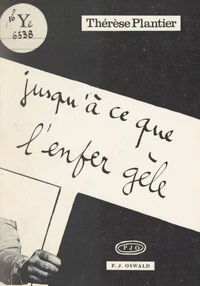 Thérèse Plantier
16° Ye
6538
jusqu'à ce que
l'enfer gèle
PJO
P. J. OSWALD